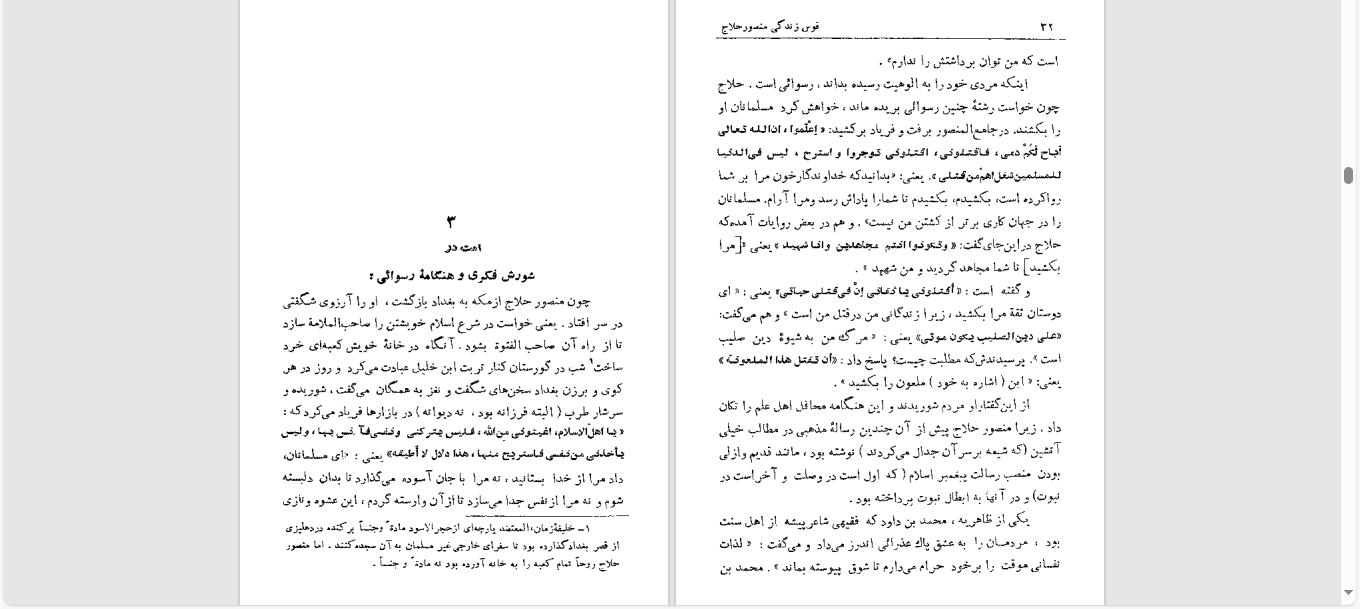 ۳
است در
شورش فکری و هنگامهٔ رسوائی :
چون منصور حلاج ازمکه به بغداد بازگشت ، او را آرزوی شگفتی
در سر افتاد . یعنی خواست در شرع اسلام خویشتن را صاحب‌الملامة سازد
تا از راه آن صاحب الفتوة بشود . آنگاه در خانهٔ خویش کعبه‌ای خرد
ساخت۱ شب در گورستان کنار تربت ابن خلیل عبادت می‌کرد و روز در هر
کوی و برزن بغداد سخن‌های شگفت و نغز به همگان می‌گفت ، شوریده و
سرشار طرب ( البته فرزانه بود ، نه دیوانه ) در بازارها فریاد می‌کرد که :
« یا اهل‌الاسلام، اغیثونی من‌الله ، فلیس یترکنی ونفسی‌فآنس بها ، ولیس
یأخذنی من‌نفسی فاستریح منها ، هذا دلال لا أطیقه» یعنی : «ای مسلمانان،
داد مرا از خدا بستانید ، نه مرا با جان آسوده می‌گذارد تا بدان دلبسته
شوم و نه مرا از نفس جدا می‌سازد تا از آن وارسته گردم ، این عشوه ونازی
۱- خلیفهٔ زمان، المعتضد پارچه‌ای از حجرالاسود مادة و جنساً برکنده در دهلیزی
از قصر بغداد گذارده بود تا سفرای خارجی غیر مسلمان به آن سجده کنند . اما منصور
حلاج روحاً تمام کعبه را به خانه آورده بود نه مادة و جنساً .
۳۲ قوس زندگی منصور حلاج
است که من توان برداشتش را ندارم» .
اینکه مردی خود را به الوهیت رسیده بداند ، رسوائی است . حلاج
چون خواست رشتهٔ چنین رسوائی بریده ماند ، خواهش کرد مسلمانان او
را بکشند. در جامع‌المنصور برفت و فریاد برکشید: « إعلَموا ، ان‌الله تعالی
أباح لَکُم دمی ، فاقتلونی ، اقتلونی توجروا و استرح ، لیس فی‌الدنیا
للمسلمین شغل اهم من قتلی ». یعنی: «بدانید که خداوندگار خون مرا بر شما
روا کرده است، بکشیدم، بکشیدم تا شما را پاداش رسد و مرا آرام. مسلمانان
را در جهان کاری برتر از کشتن من نیست» . و هم در بعض روایات آمده‌که
حلاج دراین‌جای‌گفت: « وتکونوا انتم مجاهدین وانا شهید » یعنی «[مرا
بکشید] تا شما مجاهد گردید و من شهید » .
و گفته است : «أقتلونی یا ثقاتی إنّ فی‌قتلی حیاتی» یعنی : « ای
دوستان ثقة مرا بکشید ، زیرا زندگانی من درقتل من است » و هم می‌گفت:
«علی دین‌الصلیب یکون موتی» یعنی : « مرگ من به شیوهٔ دین صلیب
است ». پرسیدندش‌که مطلبت چیست؟ پاسخ داد : «أن تقتل هذا الملعونة »
یعنی: « این ( اشاره به خود ) ملعون را بکشید » .
از این‌گفتارلو مردم شوریدند و این هنگامه محافل اهل علم را تکان
داد . زیرا منصور حلاج پیش از آن چندین رسالهٔ مذهبی در مطالب خیلی
آتشین (که شیعه برسر آن جدال می‌کردند ) نوشته بود ، مانند قدیم وازلی
بودن منصب رسالت پیغمبر اسلام ( که اول است در وصلت و آخراست در
نبوت) و در آنها به ابطال نبوت پرداخته بود .
یکی از ظاهریه ، محمد بن داود که فقیهی شاعرپیشه از اهل سنت
بود ، مردمان را به عشق پاك عذرائی اندرز می‌داد و می‌گفت : « لذات
نفسانی موقت را برخود حرام می‌دارم تا شوق پیوسته بماند » . محمد بن